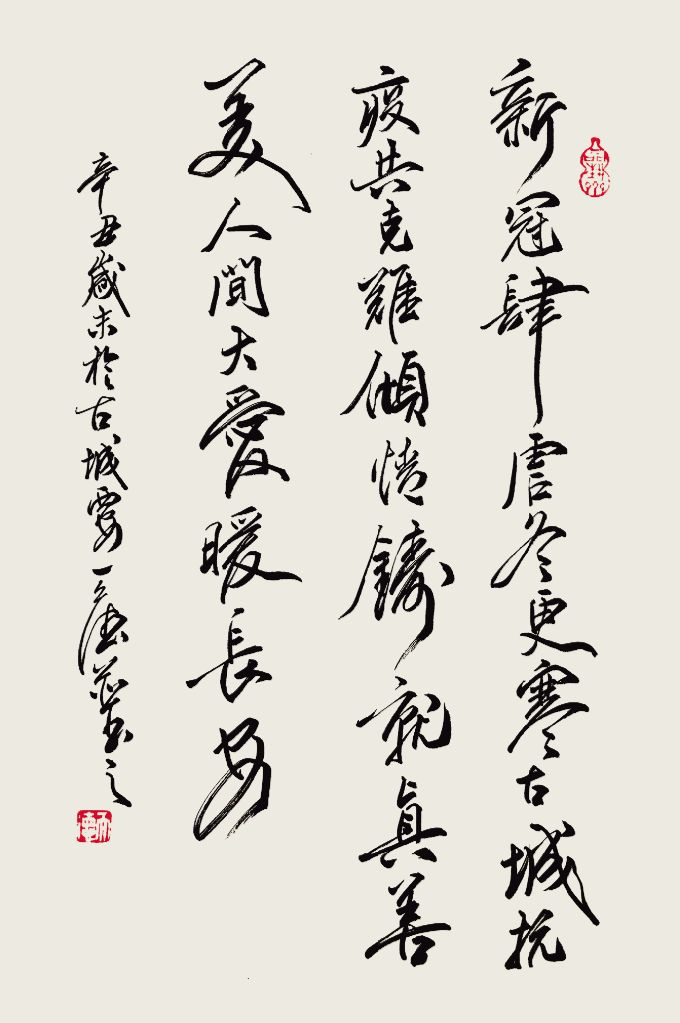 新冠肆虐冬更寒古城抗
疫共克難傾情鑄就真善
美人間大愛暖長安
辛丑歲末於古城要一德并書之